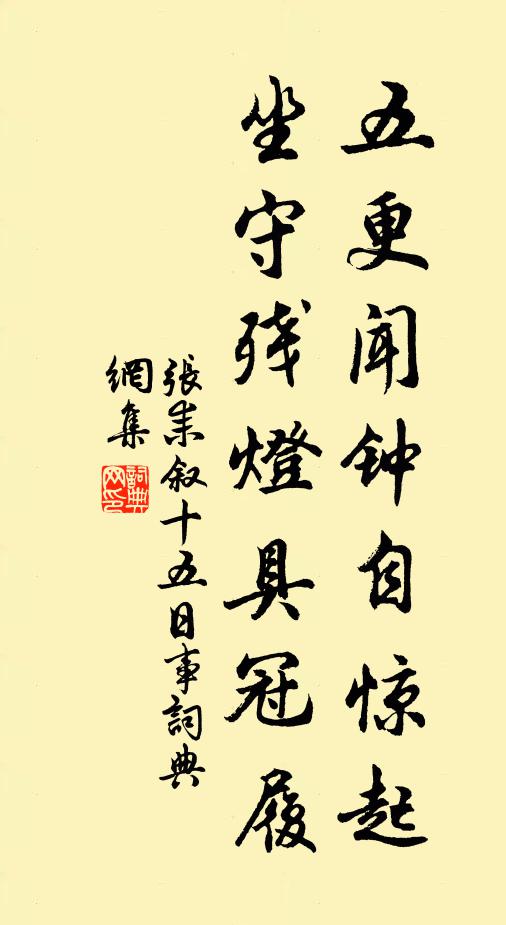 五更闻钟自惊起
坐守残燈具冠履
張耒叙十五日事詞典
網集
詞典
网印